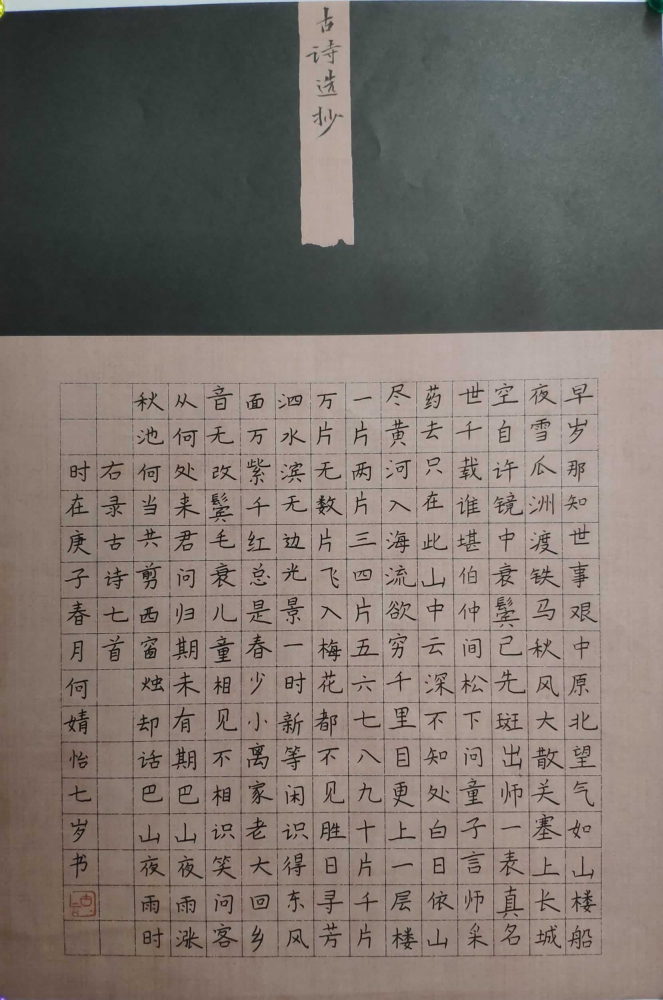 古诗选抄
早岁那知世事艰中原北望气如山楼船
夜雪瓜洲渡铁马秋风大散关塞上长城
空自许镜中衰鬓已先斑出师一表真名
世千载谁堪伯仲间松下问童子言师采
药去只在此山中云深不知处白日依山
尽黄河入海流欲穷千里目更上一层楼
一片两片三四片五六七八九十片千片
万片无数片飞入梅花都不见胜日寻芳
泗水滨无边光景一时新等闲识得东风
面万紫千红总是春少小离家老大回乡
音无改鬓毛衰儿童相见不相识笑问客
从何处来君问归期未有期巴山夜雨涨
秋池何当共剪西窗烛却话巴山夜雨时
右录古诗七首
时在庚子春月何婧怡七岁书